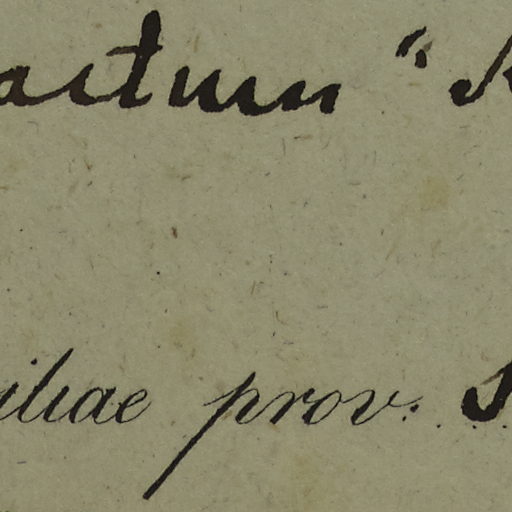 actum "
iliae prov.